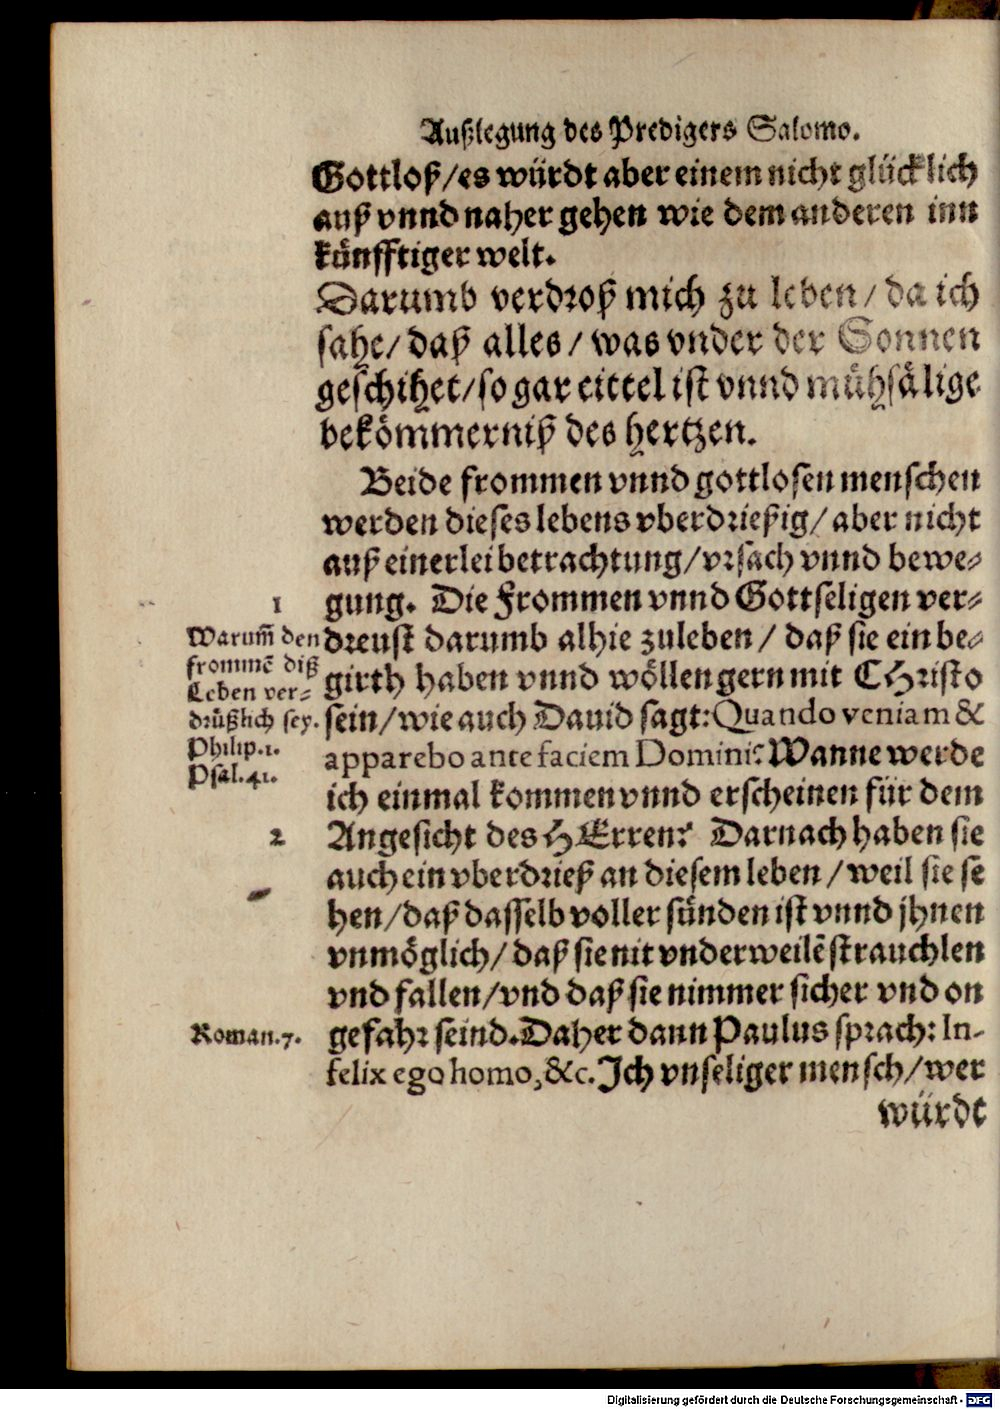 Außlegung des Predigers Salomo.
Gottloß/es würdt aber einem nicht glücklich
auß vnnd naher gehen wie dem anderen inn
künfftiger welt.
Darumb verdroß mich zu leben/ da ich
sahe/ daß alles/ was vnder der Sonnen
geschihet/so gar eittel ist vnnd mühsälige
bekömmerniß des hertzen.
Beide frommen vnnd gottlosen menschen
werden dieses lebens vberdrießig/ aber nicht
auß einerlei betrachtung/vrsach vnnd bewe⸗
gung. Die Frommen vnnd Gottseligen ver⸗
dreust darumb alhie zuleben/ daß sie ein be⸗
girth haben vnnd wöllen gern mit CHristo
sein/wie auch Dauid sagt: Quando veniam &
apparebo ante faciem Domini? Wanne werde
ich einmal kommen vnnd erscheinen für dem
Angesicht des HErren? Darnach haben sie
auch ein vberdrieß an diesem leben/weil sie se
hen/daß dasselb voller sünden ist vnnd jhnen
vnmöglich/ daß sie nit vnderweilẽ strauchlen
vnd fallen/vnd daß sie nimmer sicher vnd on
gefahr seind. Daher dann Paulus sprach: In-
felix ego homo, &c. Ich vnseliger mensch/wer
würdt
1
Warum̃ den
frommẽ diß
Leben ver⸗
drüßlich sey.
Philip.1.
Psal.41.
2
Roman.7.
Digitalisierung gefördert durch die Deutsche Forschungsgemeinschaft - DFG